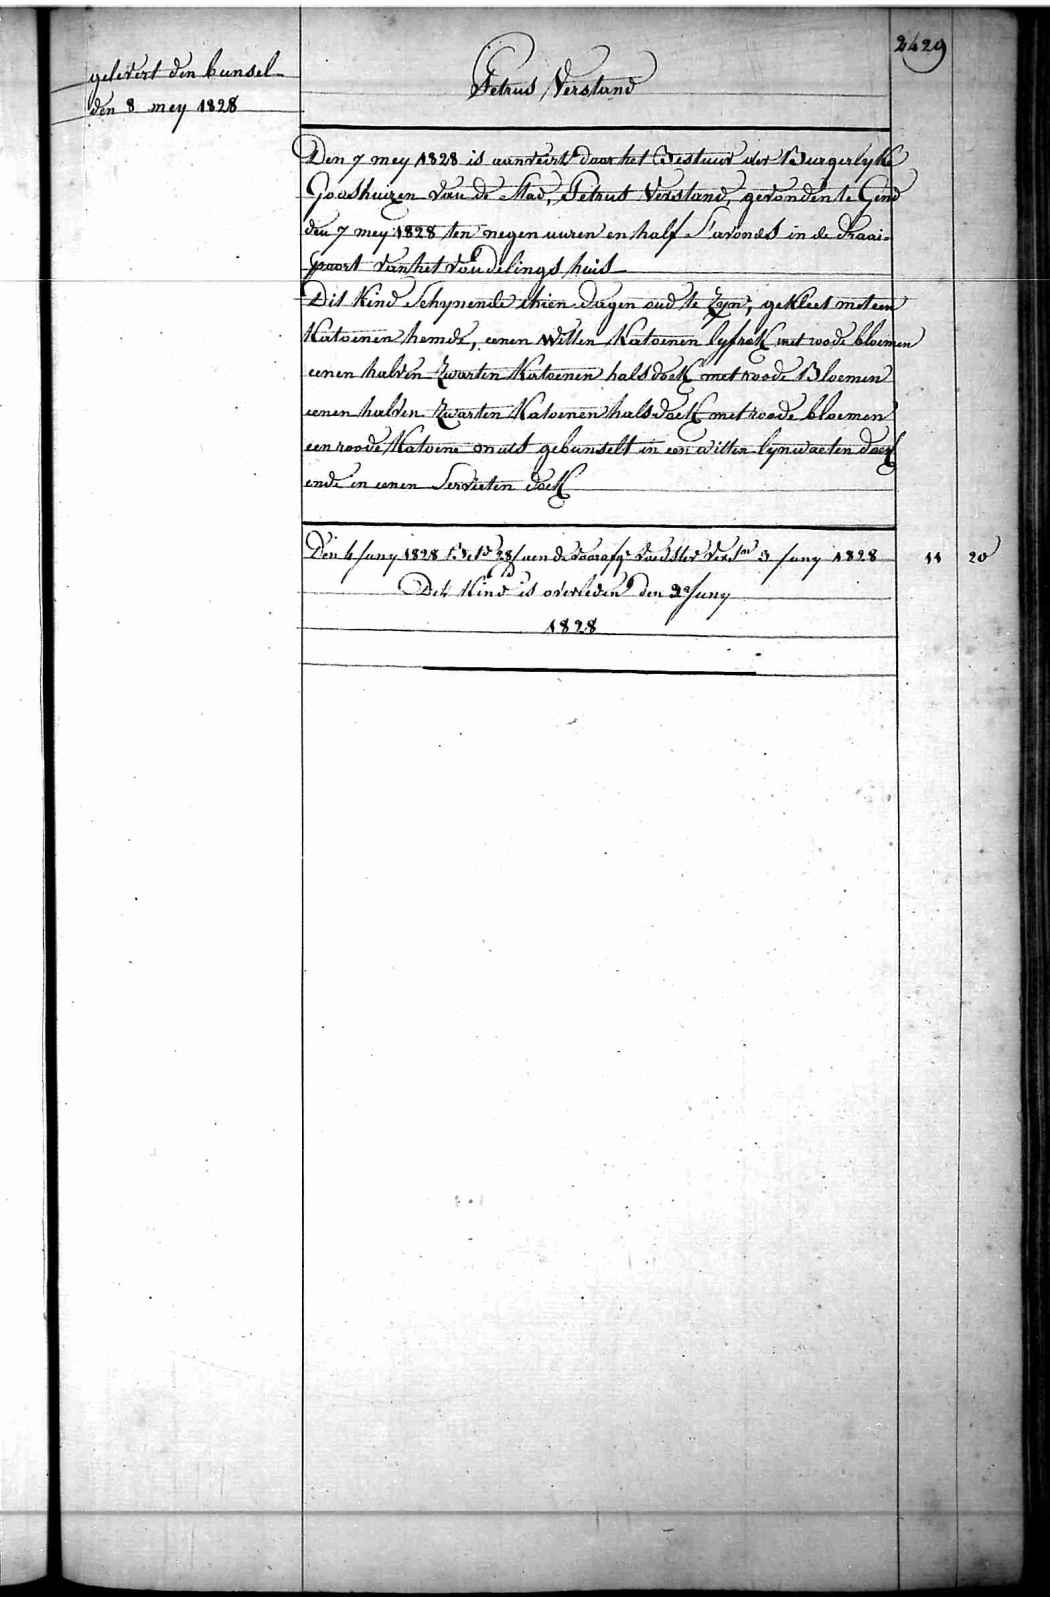 2429
gelevert den bunsel
den 8 mey 1828
Petrus Verstand
Den 7 mey 1828 is aanveirt door het Bestuur der Burgerlyke
Godshuizen van de Stad, Petrus Verstand, gevonden te Gend
den 7 mey 1828 ten negen uuren en half S'avonds in de draai-
poort van het vondelings huis
Dit Kind Schynende thien dagen oud te Zyn, gekleet met een
Katoenen hemde, eenen witten Katoenen lyfrok met roode bloemen
eenen halven Zwarten Katoenen halsdoek met roode Bloemen
eenen halven Zwarten Katoenen halsdoek met roode bloemen
een roode Katoene muts gebunselt in een witten lynwaeten doek
ende in eenen Servieten doek
Den 4 Juny 1828 aen de voedster 3 Juny 1828 11 20
Dit Kind is overleden den Juny
1828